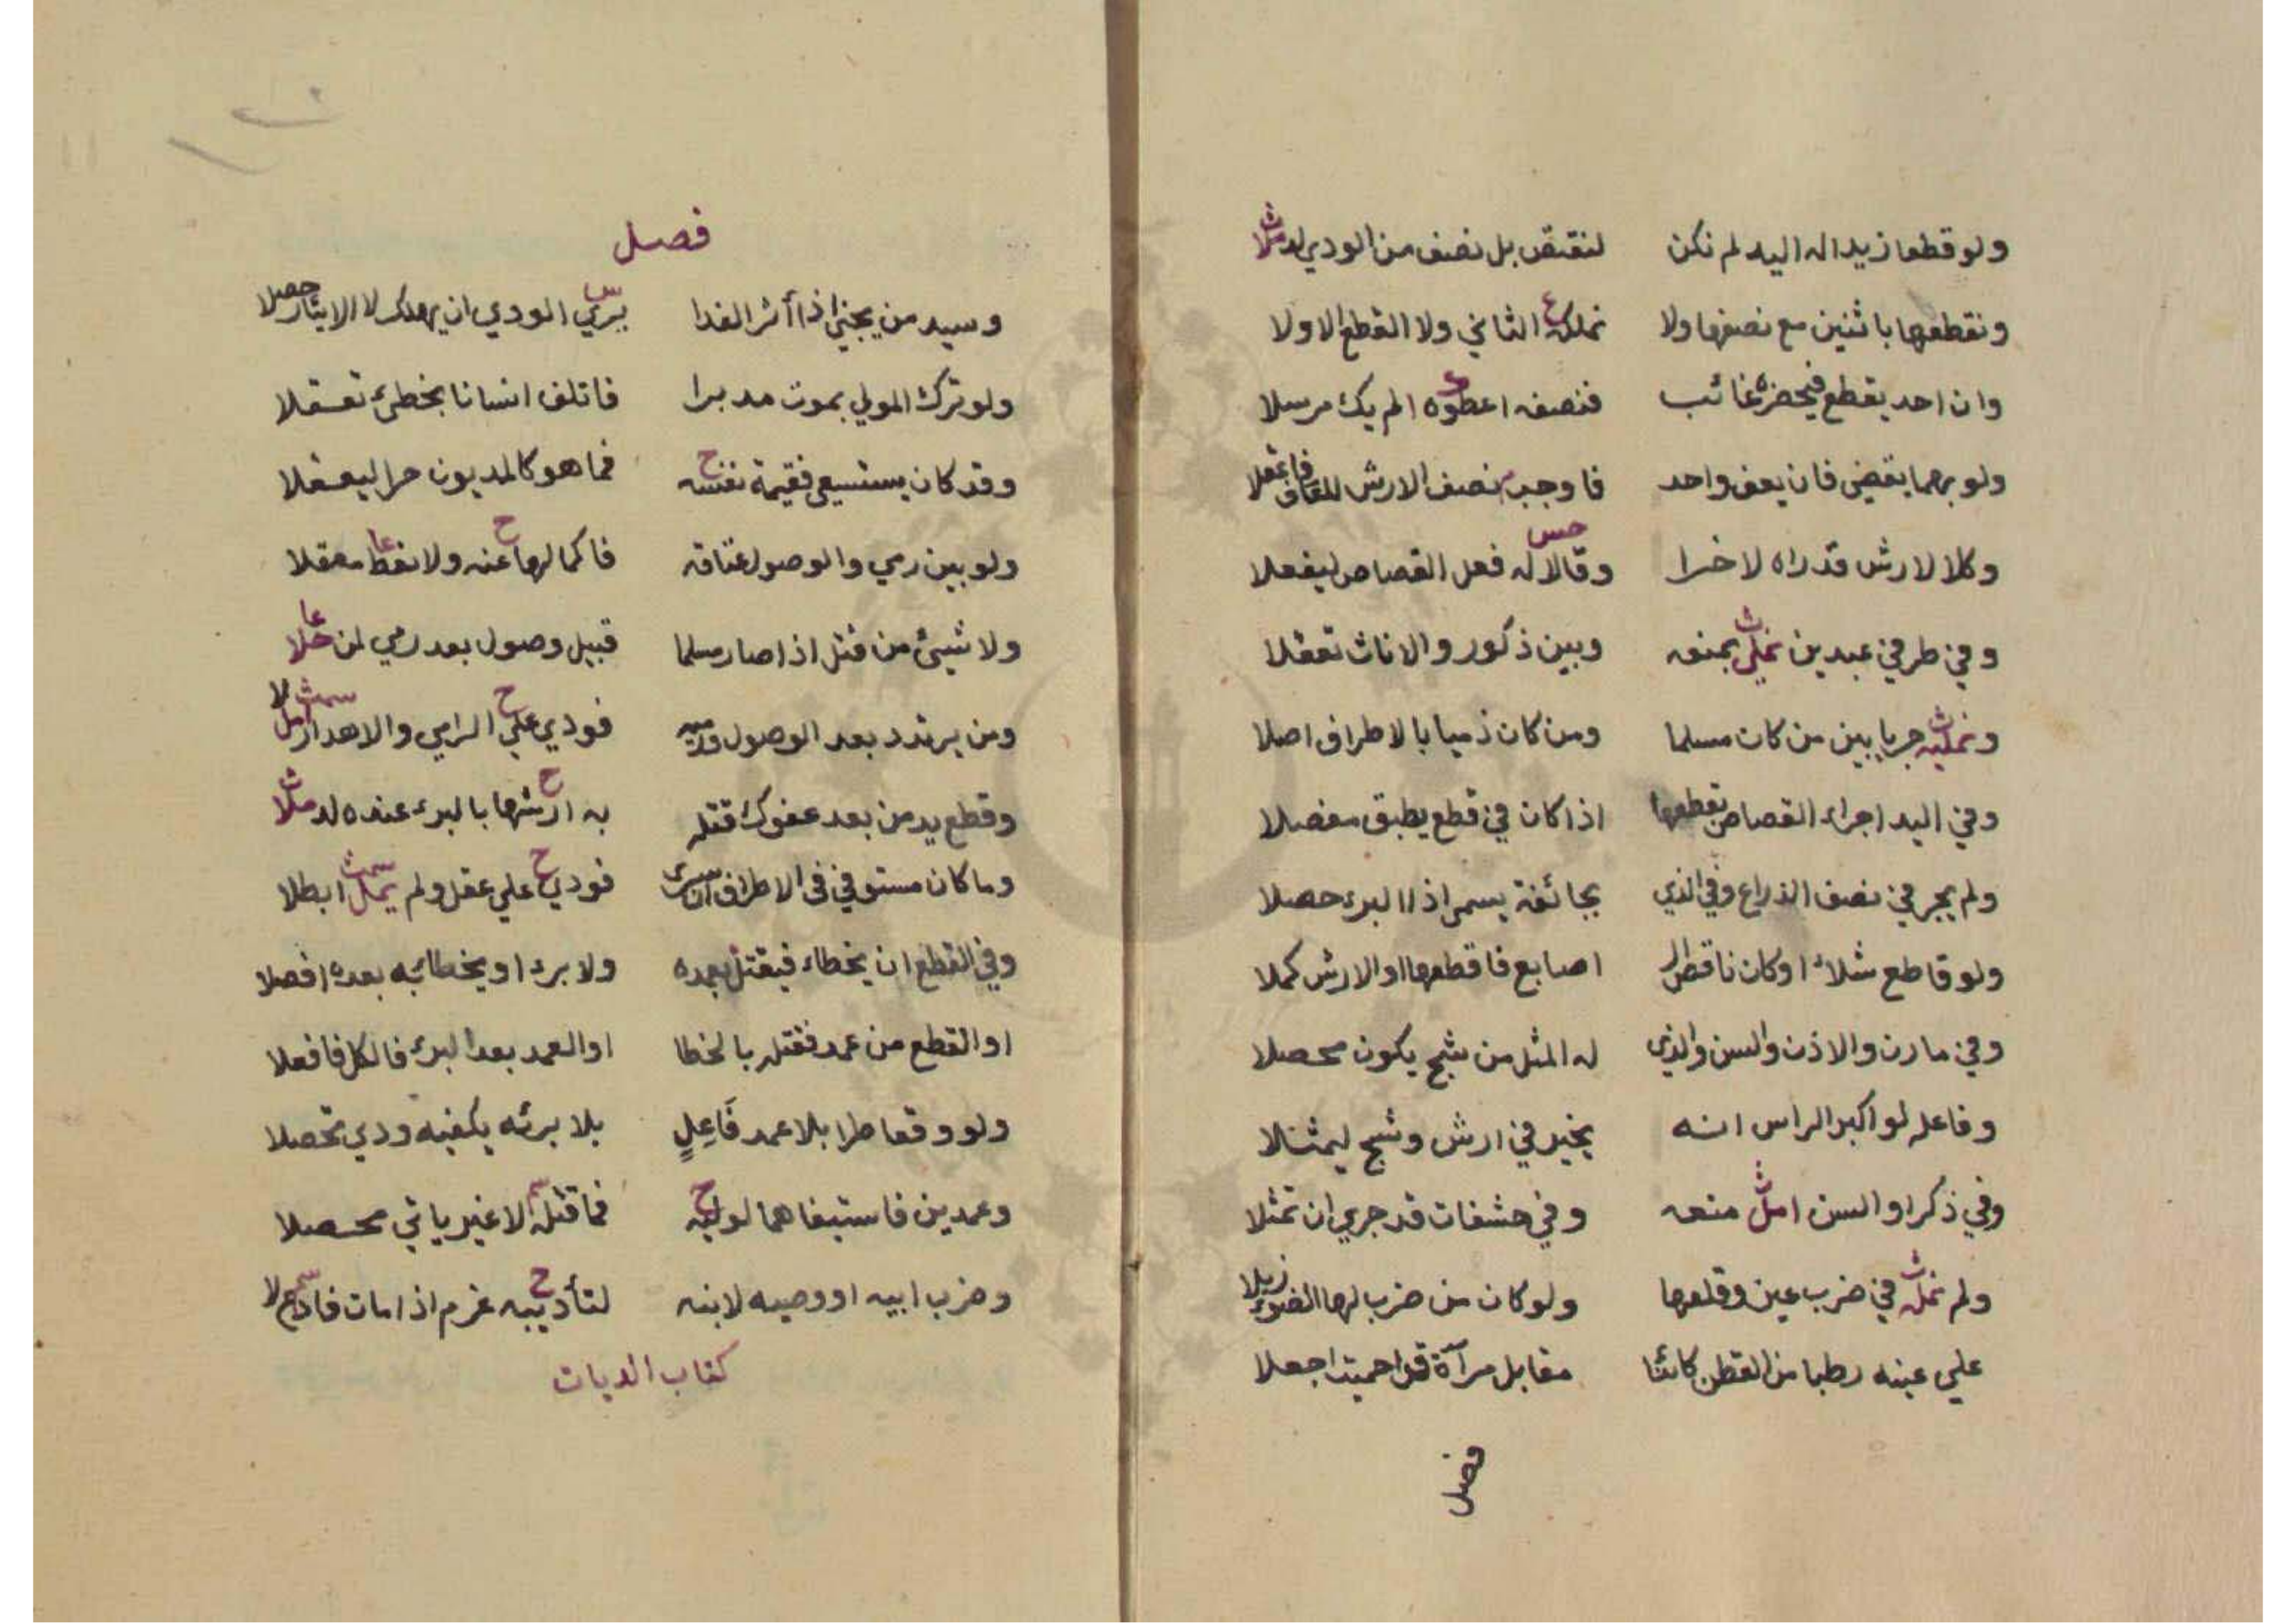 ولو قطعا زيدا له اليد لم نكن لنقتص بل نصف من الودي
ونقطعها باثنين مع نصفها ولا نملكه الثاني ولا القطع الاولا
وان احد يقطع فيحضر غائب فنصفه اعطوه الم يك مرسلا
ولو بهما يقضى فان يعف واحد فاوجب نصف الارش فاعقلا
وكلا لارش قد راه لاخرا وقالا له فعل القصاص ليفعلا
وفي طرفي عبدين نملى بمنعه وبين ذكور والاناث تعقلا
ونمليه جريا بين من كان مسلما ومن كان ذميا بالاطراف اصلا
وفي اليد اجراء القصاص تقطعها اذا كان في قطع يطبق مفصلا
ولم يجر في نصف الذراع وفي الذي بجائفة يسمى اذا البرء حصلا
ولو قاطع شلاء او كان ناقص ال اصابع فاقطعها او الارش كملا
وفي مارن والاذن والسن والذي له المثل من شج يكون محصلا
وفاعله لو اكبر الراس انه يخير في ارش وشج ليمثلا
وفي ذكر او السن امل منعه وفي حشفات قد جرى ان تمثلا
ولم نمله في ضرب عين وقلعها ولو كان من ضرب لها الضوء زيلا
علي عينه رطبا من القطن كائنا مقابل مرآة قد احميت اجعلا
فصل
فصل
وسيد من يجني اذا أثر الفدا يرى الودي ان يهلك لا الايثار حصلا
ولو ترك المولي بموت مدبرا فاتلف انسانا بخطئ تعقلا
وقد كان يستسعي فقيمة نفسه فما هو كالمديون حرا ليعقلا
ولو بين رمي والوصول عتاقه فاكمالها عنه ولا نعط معقلا
ولا شيئ من قتل اذا صار مسلما قبيل وصول بعد رمي لمن خلا
ومن يرتدد بعد الوصول فودي علي الرامي والاهدار
وقطع يد من بعد عفوك قتله به ارشها بالبرء عنده
وما كان مستوفي في الاطراف ان سرى فودي علي عقل ولم يمل ابطلا
وفي القطع ان يخطاء فيقتل بعمده ولا برء او يخطائه بعده افصلا
او القطع من عمد فقتله بالخطا او العمد بعد البرء فالكل فافعلا
ولو وقعا طرا بلا عمد فَاعِلٍ بلا برئه يكفيه ودي تحصلا
وعمدين فاستيفاهما لوليه فما قتله الا غير ياتي محصلا
وضرب ابيه او وصيه لابنه لتأديبه غرم اذا مات
كتاب الديات